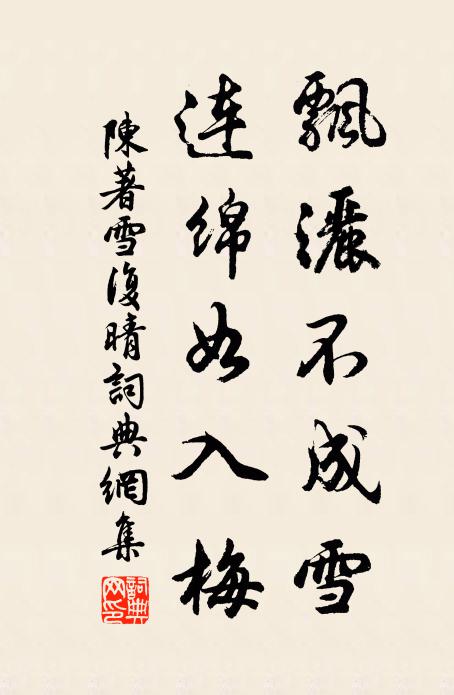 飄灑不成雪
連綿如入梅
陳著雪復晴詞典網集
詞典網印